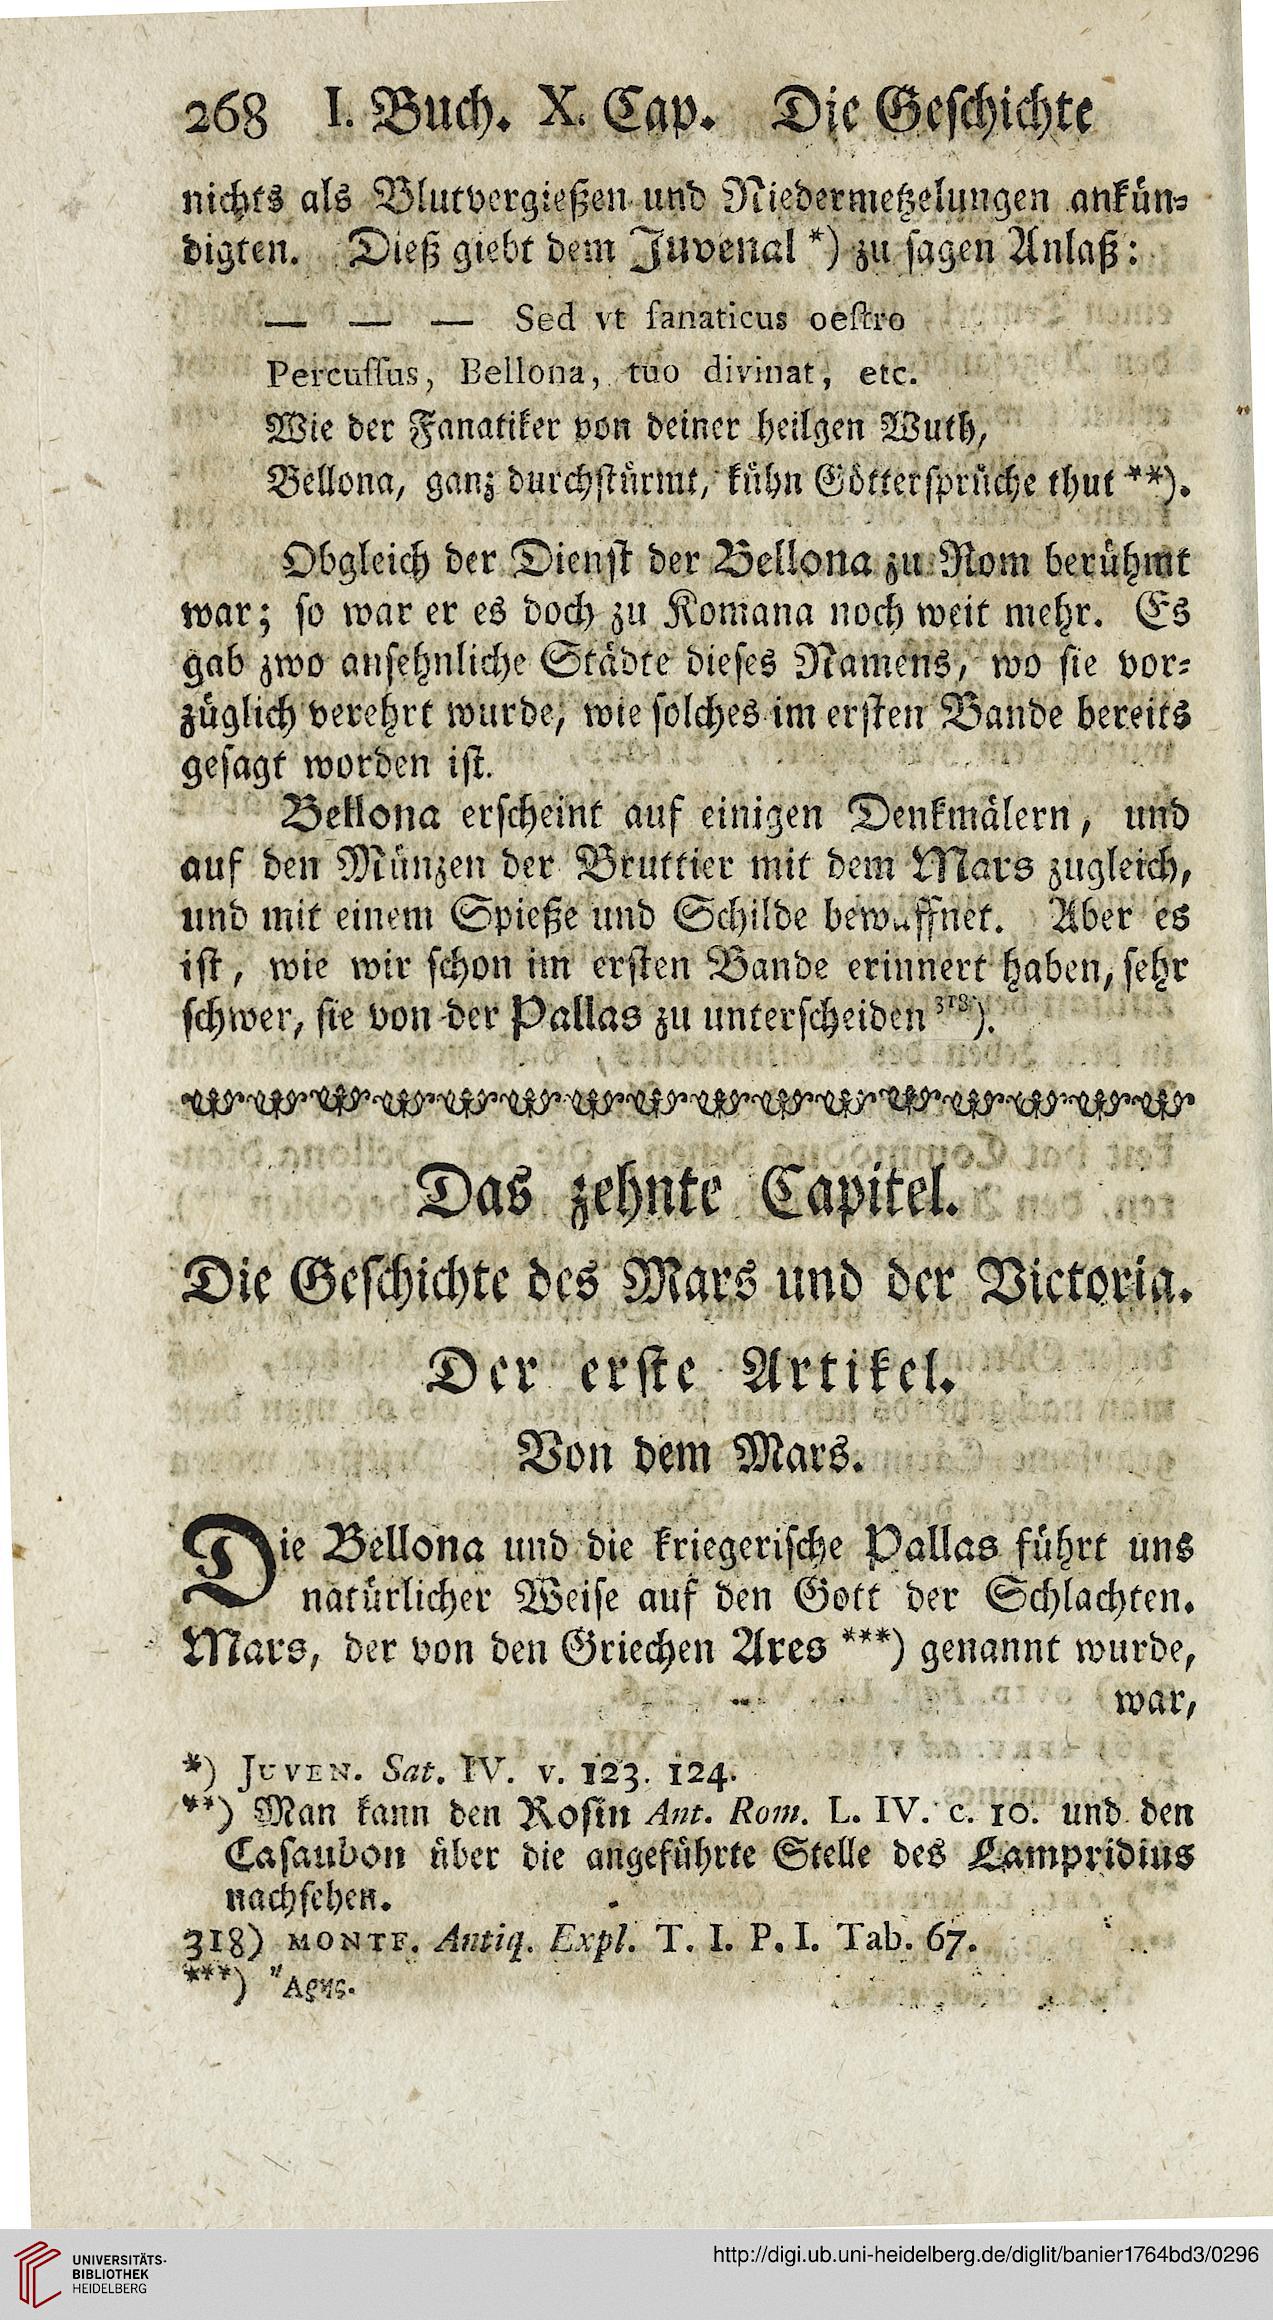 268 I. Buch. X. Cap. Die Geschichte
nichts als Blutvergießen und Niedermetzelungen ankün-
digten. Dieß giebt dem Juvenal *) zu sagen Anlaß:
— — — Sed vt fanaticus oeſtro
Percuſſus, Bellona, tuo divinat, etc.
Wie der Fanatiker von deiner heilgen Wuth,
Bellona, ganz durchstürmt, kühn Göttersprüche thut **).
Obgleich der Dienst der Bellona zu Rom berühmt
war; so war er es doch zu Komana noch weit mehr. Es
gab zwo ansehnliche Städte dieses Namens, wo sie vor-
züglich verehrt wurde, wie solches im ersten Bande bereits
gesagt worden ist.
Bellona erscheint auf einigen Denkmälern, und
auf den Münzen der Bruttier mit dem Mars zugleich,
und mit einem Spieße und Schilde bewaffnet. Aber es
ist, wie wir schon im ersten Bande erinnert haben, sehr
schwer, sie von der Pallas zu unterscheiden 318).
Das zehnte Capitel.
Die Geschichte des Mars und der Victoria.
Der erste Artikel.
Von dem Mars.
Die Bellona und die kriegerische Pallas führt uns
natürlicher Weise auf den Gott der Schlachten.
Mars, der von den Griechen Ares ***) genannt wurde,
war,
*) JUVEN. Sat. IV. v. 123. 124.
**) Man kann den Rosin Ant. Rom. L. IV. c. 10. und den
Casaubon über die angeführte Stelle des Lampridius
nachsehen.
318) MONTF. Antiq. Expl. T. I. P. I. Tab. 67.
***) Ἄρης.
UNIVERSITÄTS-
BIBLIOTHEK
HEIDELBERG
http://digi.ub.uni-heidelberg.de/diglit/banier1764bd3/0296